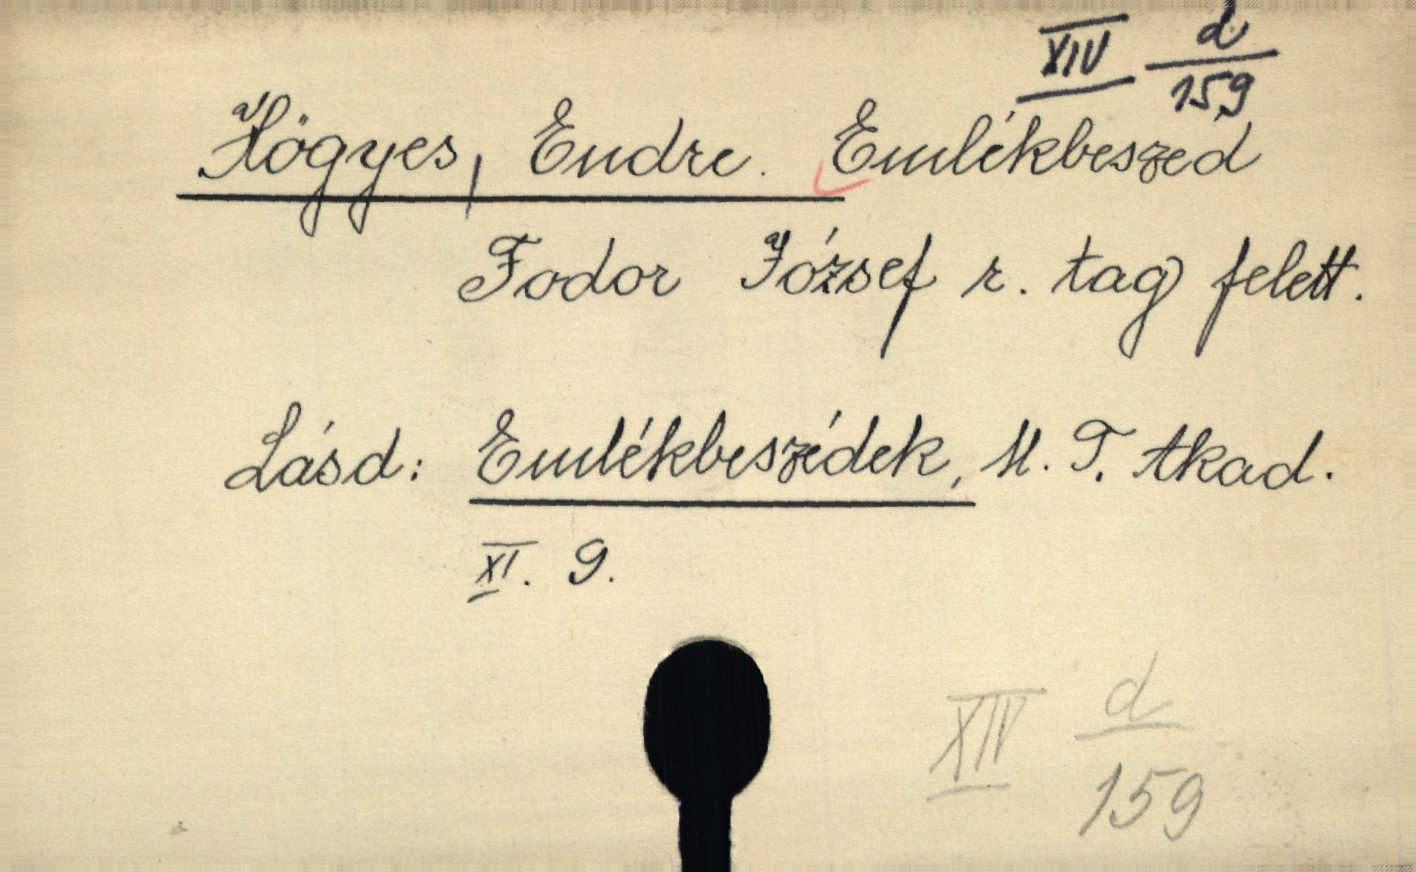 XIV d/159
Hőgyes, Endre. Emlékbeszéd
Fodor József r. tag felett.
Lásd: Emlékbeszédek, M. T. Akad.
XI. 9.
XIV d/159